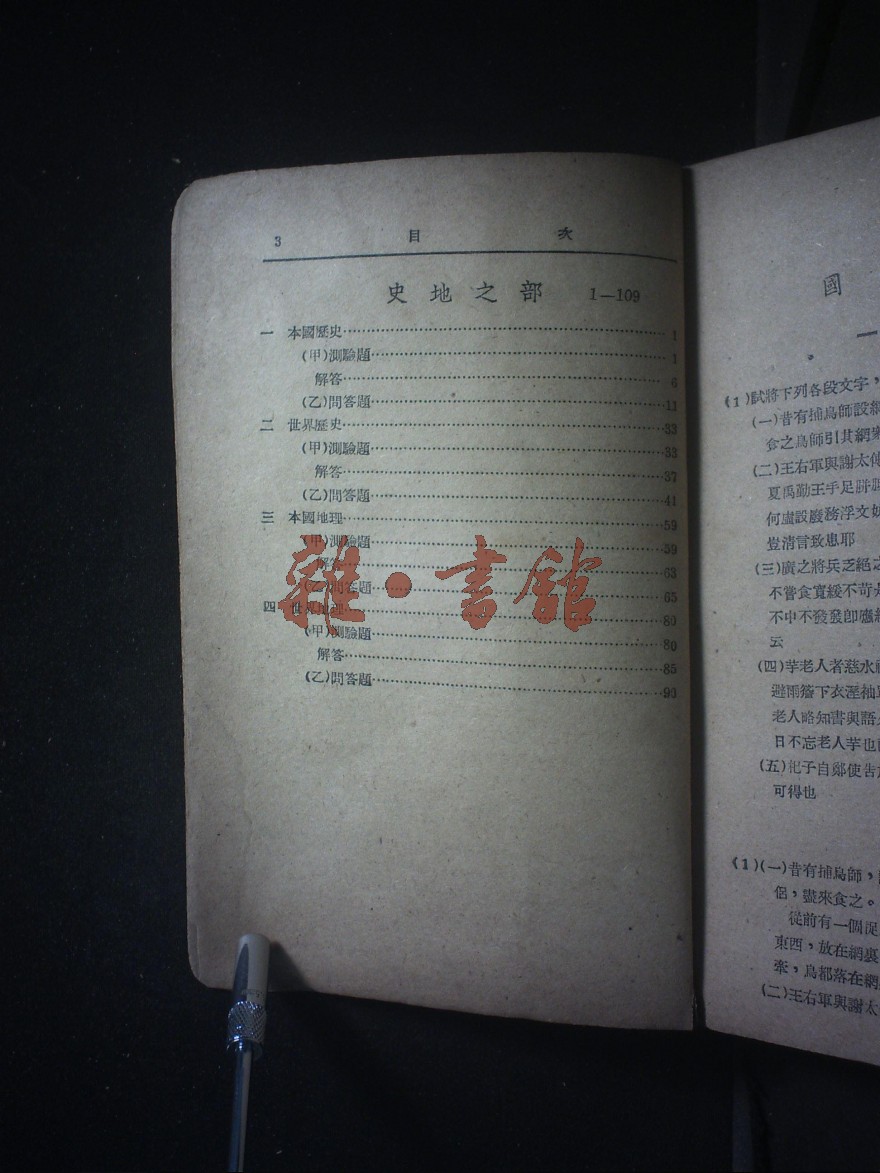 3 目 次
史地之部 1—109
一 本國歷史 1
(甲)測驗題 1
解答 6
(乙)問答題 11
二 世界歷史 33
(甲)測驗題 33
解答 37
(乙)問答題 41
三 本國地理 59
(甲)測驗題 59
解答 63
(乙)問答題 65
四 世界地理 80
(甲)測驗題 80
解答 85
(乙)問答題 90
雜·書館
國
一
(1)試將下列各段文字，
(一)昔有捕鳥師設網
食之鳥師引其網衆
(二)王右軍與謝太傅
夏禹勤王手足胼胝
何廬設廢務浮文妨
豈清言致患耶
(三)廣之將兵乏絕之
不嘗食寬緩不苛是
不中不發發卽應
云
(四)芋老人者慈水
避雨簷下衣溼袖單
老人略知書與語
日不忘老人芋也
(五)杞子自鄭使告
可得也
(1)(一)昔有捕鳥師，
侶，盡來食之。
從前有一個捉
東西，放在網裏
牽，鳥都落在網
(二)王右軍與謝太